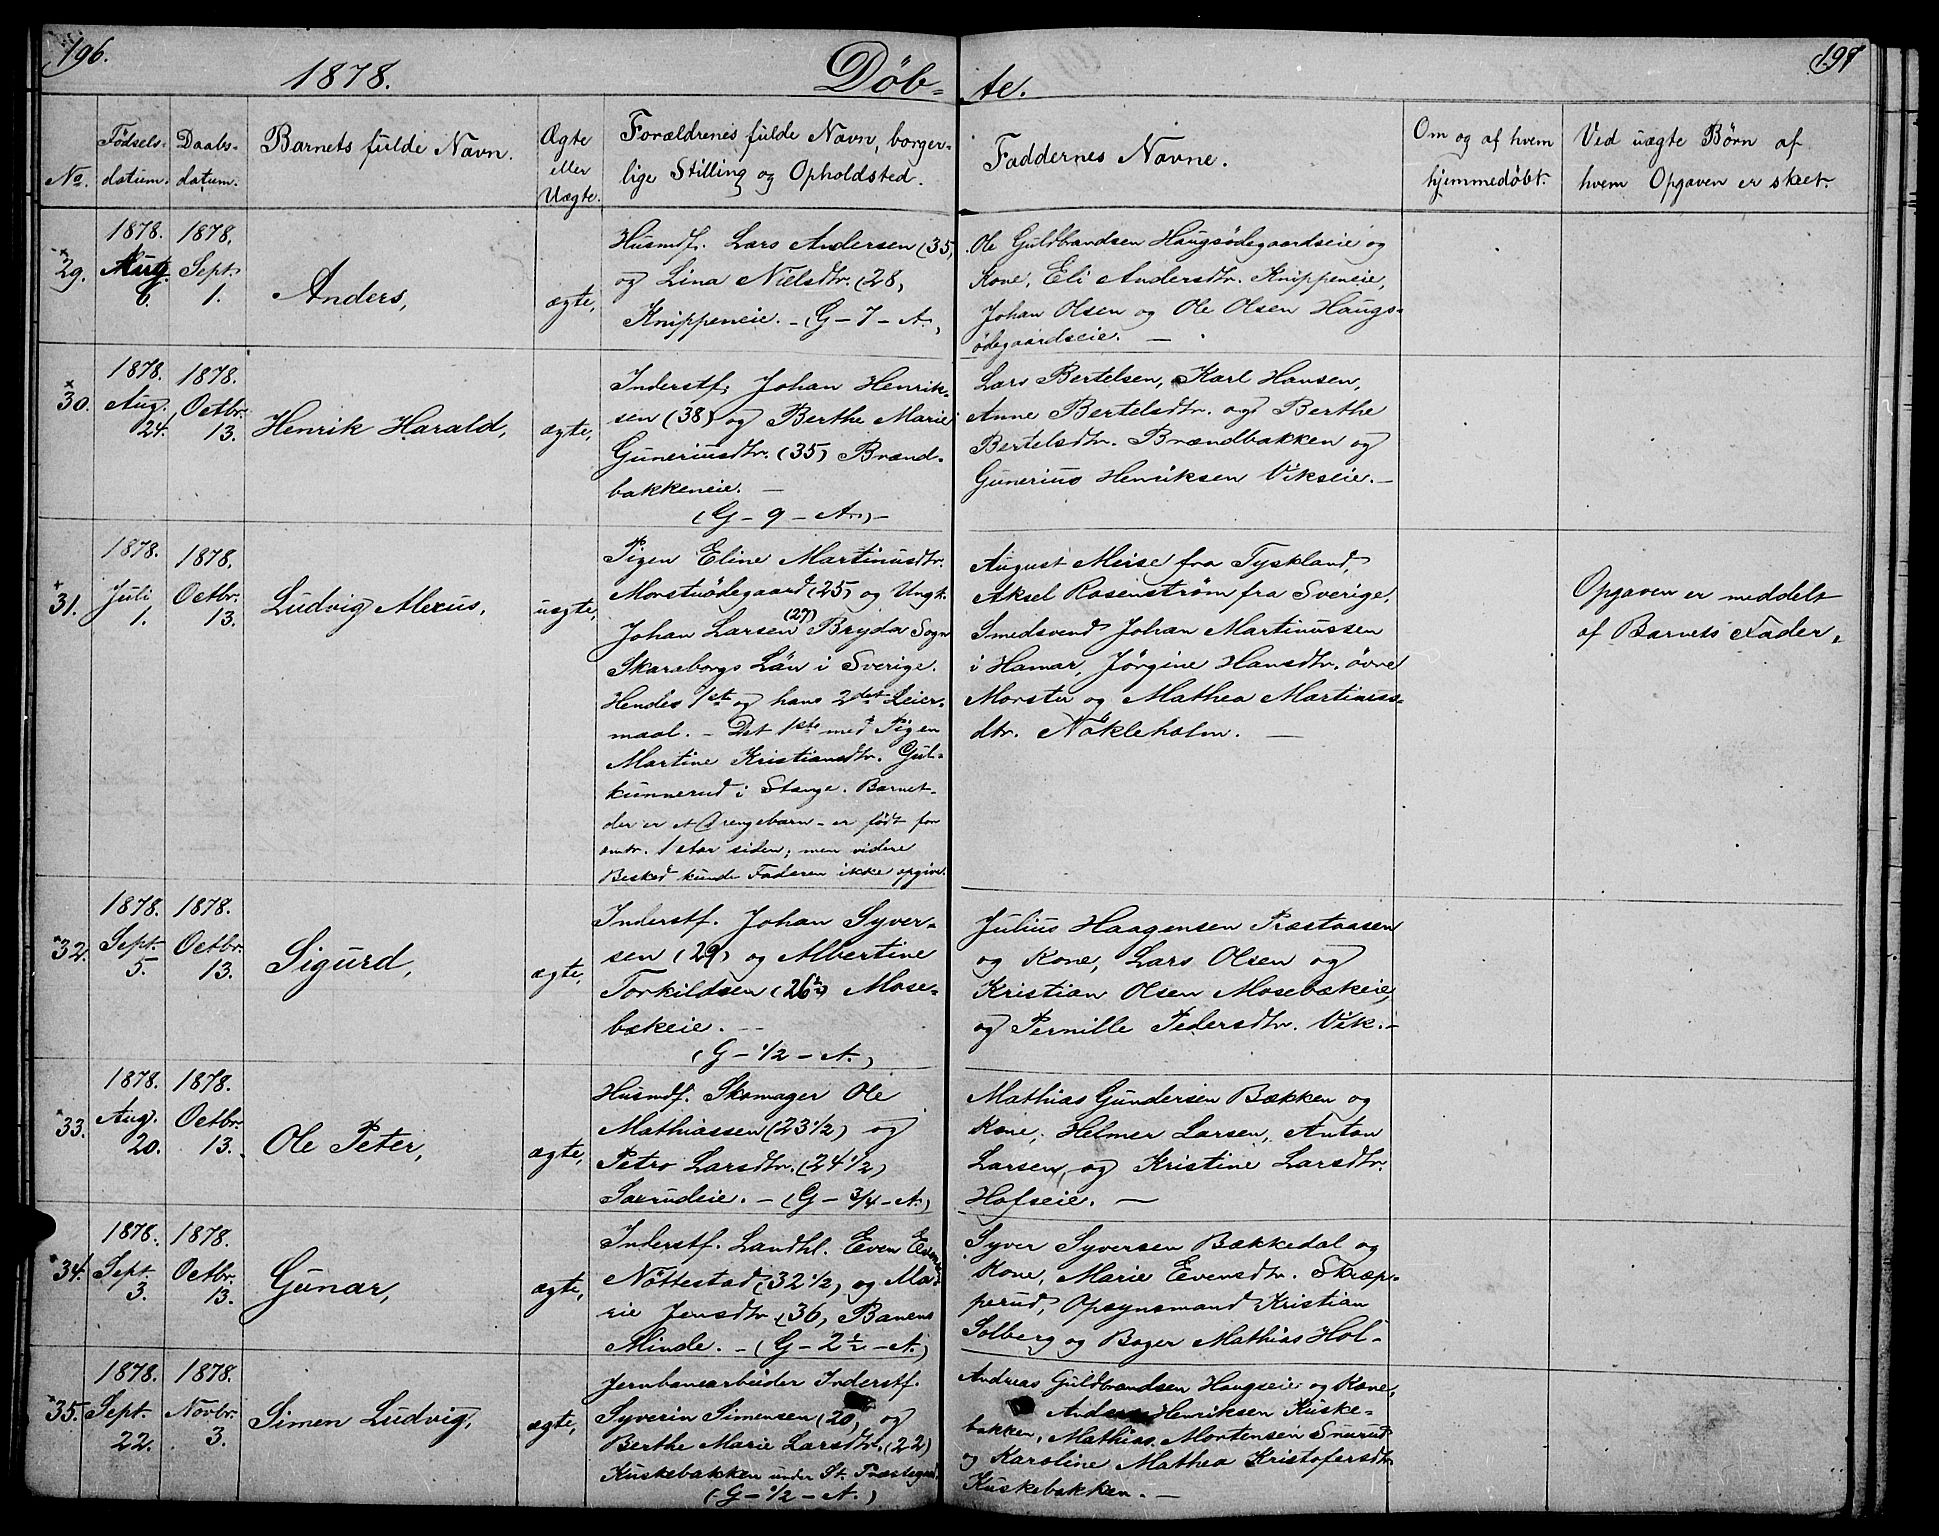 196.
1878.
Døb-
te.
197
No.
Fødsels-
datum.
Daabs-
datum.
Barnets fulde Navn.
Ægte
eller
Uægte.
Forældrenes fulde Navn, borger-
lige Stilling og Opholdsted.
Faddernes Navne.
Om og af hvem
hjemmedøbt.
Ved uægte Børn af
hvem Opgaven er skeet.
29.
1878.
Aug.
6.
1878.
Sept.
1.
Anders,
ægte,
Husmdf. Lars Andersen (35,
og Lina Nielsdtr. (28,
Knippeneie. - (G - 7 - A.,
Ole Guldbrandsen Haugsødegaardseie og
Kone, Eli Andersdtr. Knippeneie,
Johan Olsen og Ole Olsen Haugs-
ødegaardseie. -
30.
1878.
Aug.
24.
1878.
Octbr.
13.
Henrik Harald,
ægte,
Inderstf. Johan Henrik-
sen (38) og Berthe Marie
Guneriusdtr. (35) Brænd-
bakkeneie. -
(G - 9 - A.) -
Lars Bertelsen, Karl Hansen,
Anne Bertelsdtr. og Berthe
Bertelsdtr. Brændbakken og
Gunerius Henriksen Vikseie. -
31.
1878.
Juli
1.
1878.
Octbr.
13.
Ludvig Alexus,
uægte,
Pigen Eline Martinusdtr.
Morstuødegaard (25) og Ungk.
Johan Larsen (27) Bryda Sogn
Skaraborgs Län i Sverige.
Hendes 1ste og hans 2det Leier-
maal. - Det 1ste med Pigen
Martine Kristiansdtr. Gul-
kunnerud i Stange. Barnet-
der er et Drengebarn - er født for
omtr. 1 etar siden; men videre
Besked kunde Faderen ikke opgive.
August Meise fra Tyskland,
Aksel Rosenstrøm fra Sverige,
Smedsvend Johan Martinussen
i Hamar, Jørgine Hansdtr. øvre
Morstu og Mathea Martinus-
dtr. Nökleholm. -
Opgaven er meddelt
af Barnets Fader.
32.
1878.
Sept.
5.
1878.
Octbr.
13.
Sigurd,
ægte,
Inderstf. Johan Syver-
sen (29) og Albertine
Torkildsen (26½) Mose-
bækeie. -
(G - 1/2 - A.)
Julius Haagensen Præstaasen
og Kone, Lars Olsen og
Kristian Olsen Mosebækeie,
og Pernille Pedersdtr. Vik. -
33.
1878.
Aug.
20.
1878.
Octbr.
13.
Ole Peter,
ægte,
Husmdf. Skomager Ole
Mathiassen (23 1/2) og
Petro Larsdtr. (24 1/2)
Saxrudeie. - (G - 3/4 - A.)
Mathias Gundersen Bækken og
Kone, Helmer Larsen, Anton
Larsen, og Kristine Larsdtr.
Hofseie. -
34.
1878.
Sept.
3.
1878.
Octbr.
13.
Gunar,
ægte,
Inderstf. Landhl. Even Evensen
Nöttestad (32 1/2) og Ma-
rie Jensdtr. (36, Banens
Minde. - (G - 2 1/2 - A.)
Syver Syversen Bækkedal og
Kone, Marie Evensdtr. Skræp-
perud, Opsynsmand Kristian
Solberg og Bager Mathias Hol-
35.
1878.
Sept.
22.
1878.
Novbr.
3.
Simen Ludvig,
ægte,
Jernbanearbeider Inderstf.
Syverin Simensen (20, og
Berthe Marie Larsdtr. (22)
Kuskebakken under St. Præstegaard
(G - 1/2 - A.)
Andreas Guldbrandsen Haugseie og Kone,
Anders Henriksen Kuske-
bakken, Mathias Mortensen Snurud
og Karoline Mathea Kristofersdtr.
Kuskebakken. -